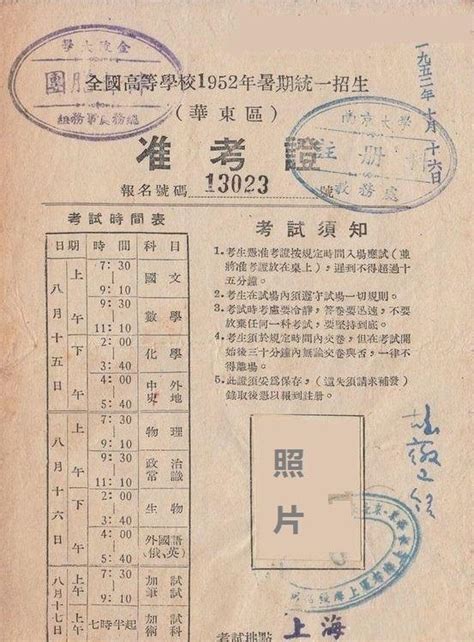 金陵大學
總務處事務組
全國高等學校1952年暑期統一招生
（華東區）
准考證
報名號碼 13023 號
南京大學
註冊
教務處
一九五二年十月十六日
考試時間表
日期 時間 科目
八月十五日
上午
7:30
9:10
國文
9:30
11:10
數學
下午
2:00
3:40
化學
4:00
5:40
中外史地
八月十六日
上午
7:30
9:10
物理
9:30
11:10
政治常識
下午
2:00
3:40
生物
4:00
5:40
外國語（俄、英）
八月十七日
上午
七時半起
加試筆試
上午
加試術科
考試須知
1.考生憑准考證按規定時間入場應試（並
將准考證放在桌上），遲到不得超過十
五分鐘。
2.考生在試場內須遵守試場一切規則。
3.考試時考慮要冷靜，答卷要迅速，不要
放棄任何一科考試，要堅持到底。
4.考生須於規定時間內交卷，但在考試開
始後三十分鐘內無論交卷與否，一律不
得離場。
5.此證須妥爲保存，（遺失須請求補發）
錄取後憑以報到註冊。
照片
考試地點 上海